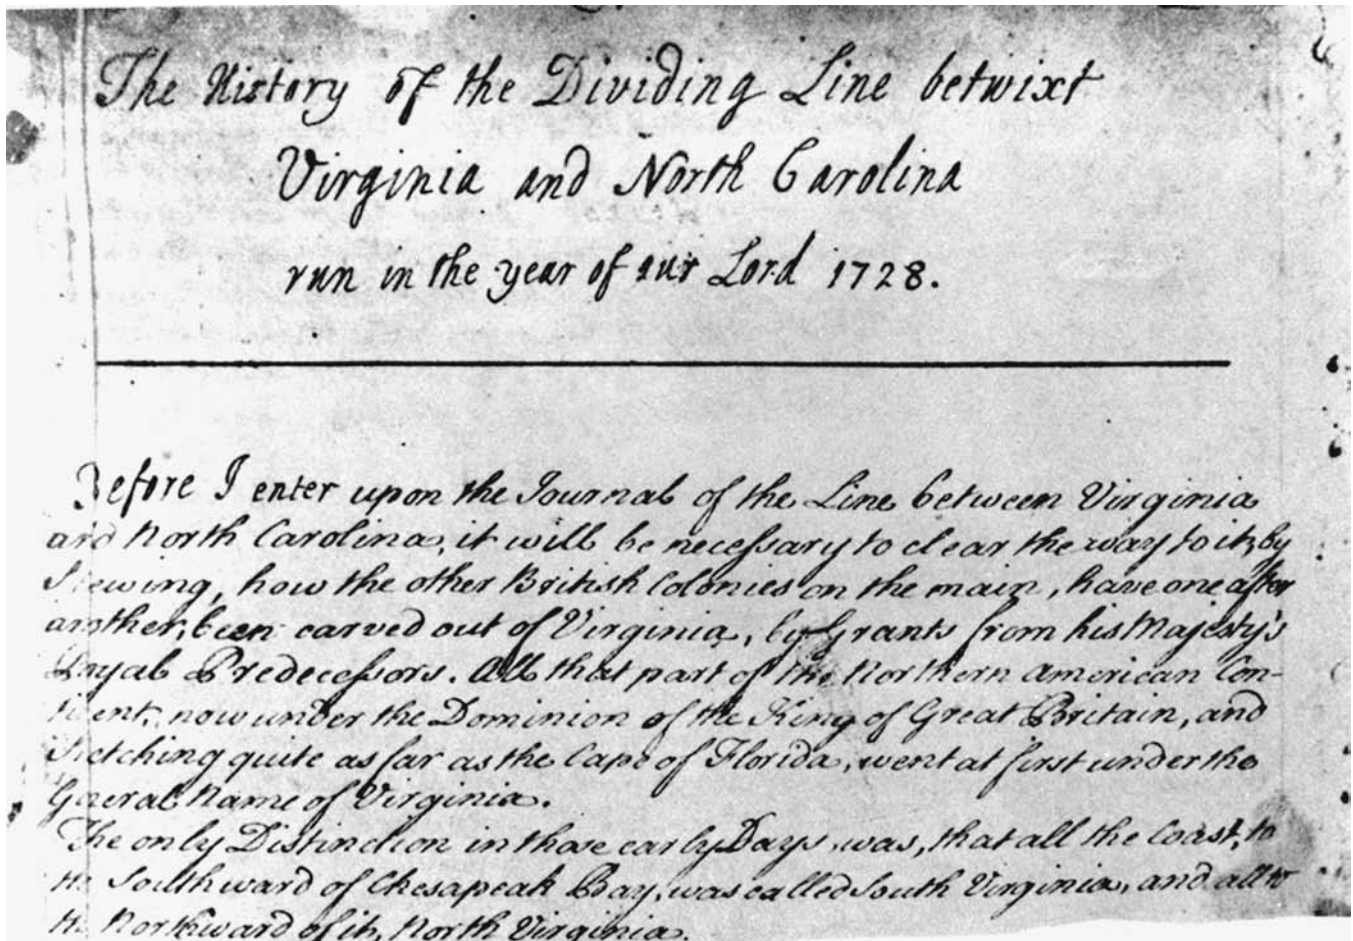 The History of the Dividing Line betwixt
Virginia and North Carolina
run in the year of our Lord 1728.
Before I enter upon the Journal of the Line between Virginia
and North Carolina, it will be necessary to clear the way to it, by
Shewing, how the other British Colonies on the main, have one after
another, been carved out of Virginia, by Grants from his Majesty's
Royal Predecessors. All that part of the Northern American Con-
tinent, now under the Dominion of the King of Great Britain, and
Stretching quite as far as the Cape of Florida, went at first under the
General Name of Virginia.
The only Distinction in those early Days was, that all the Coast, to
the Southward of Chesapeak Bay, was called South Virginia, and all to
the Northward of it, North Virginia.